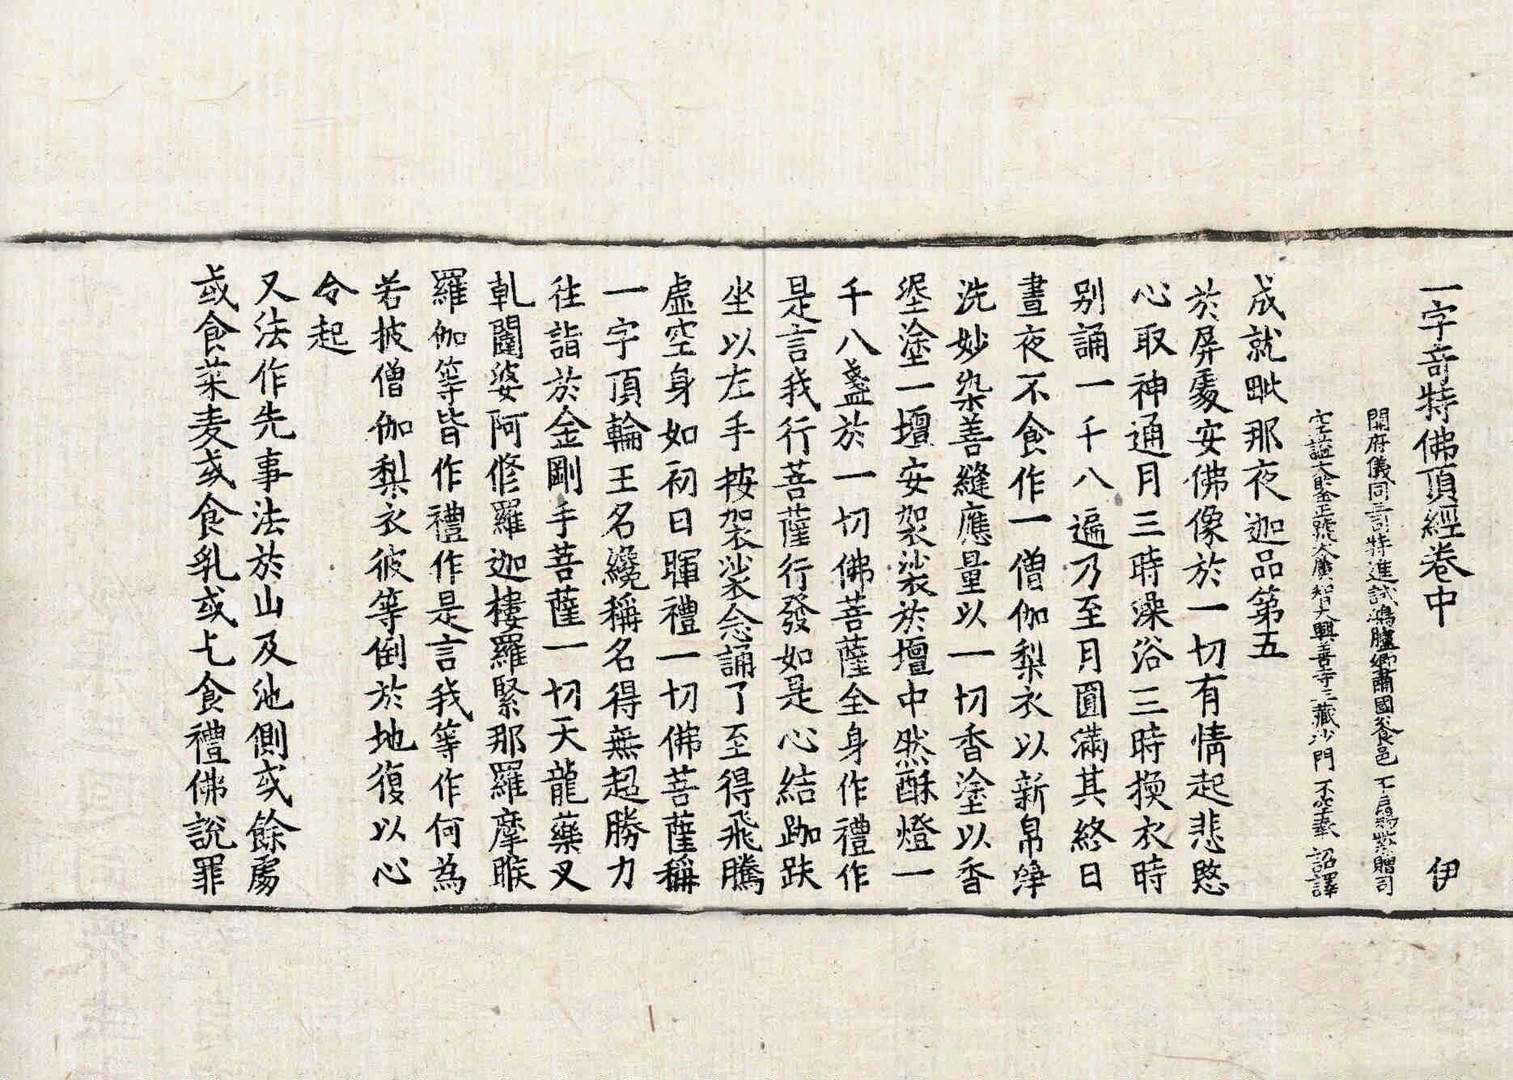 一字奇特佛頂經卷中 伊
開府儀同三司特進試鴻臚卿肅國公食邑 不三千戶 紫贈司
空謚大鑒正號大廣智大興善寺三藏沙門 不空奉 詔譯
成就毗那夜迦品第五
於屏䖏安佛像於一切有情起悲愍
心取神通月三時澡浴三時換衣時
别誦一千八遍乃至月圓滿其終日
晝夜不食作一僧伽梨衣以新帛綷
洗妙染善縫應量以一切香塗以香
埿塗一壇安袈裟衣於壇中然酥燈一
千八盞於一切佛菩薩全身作禮作
是言我行菩薩行發如是心結跏趺
坐以左手按袈裟念誦了至得飛騰
虛空身如初日暉禮一切佛菩薩稱
一字頂輪王名纔稱名得無超勝力
往詣於金剛手菩薩一切天龍藥叉
乹闥婆阿修羅迦樓羅緊那羅摩睺
羅伽等皆作禮作是言我等作何為
若披僧伽梨衣彼等倒於地復以心
令起
又法作先事法於山及池側或餘䖏
或食菜麦或食乳或乞食禮佛說罪